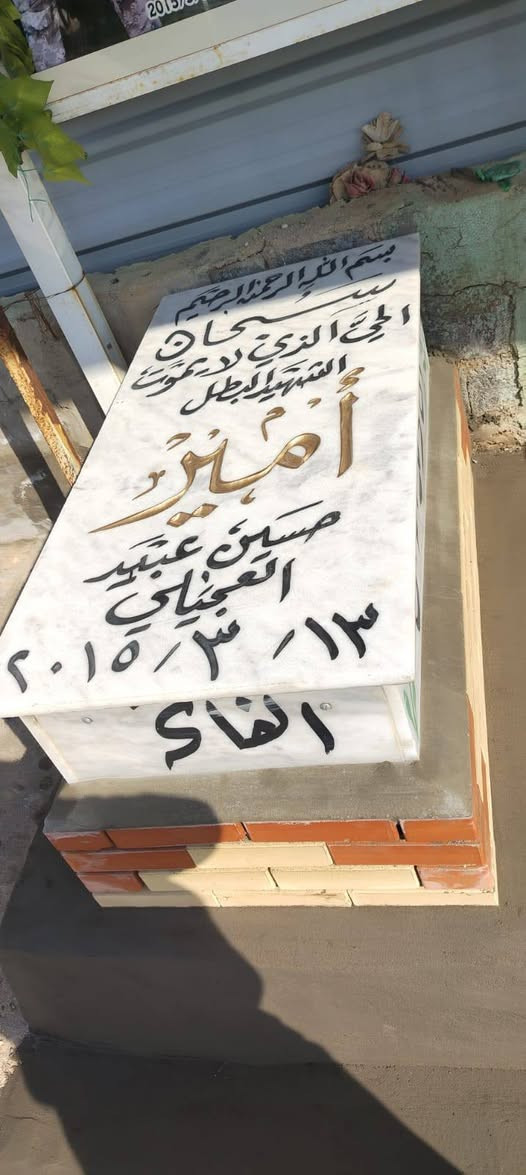 2015
بسم الله الرحمن الرحيم
سبحان
الحيّ الذي لا يموت
الشهيد البطل
أمير
حسين عبيد
العجيلي
١٣ / ٣ / ٢٠١٥